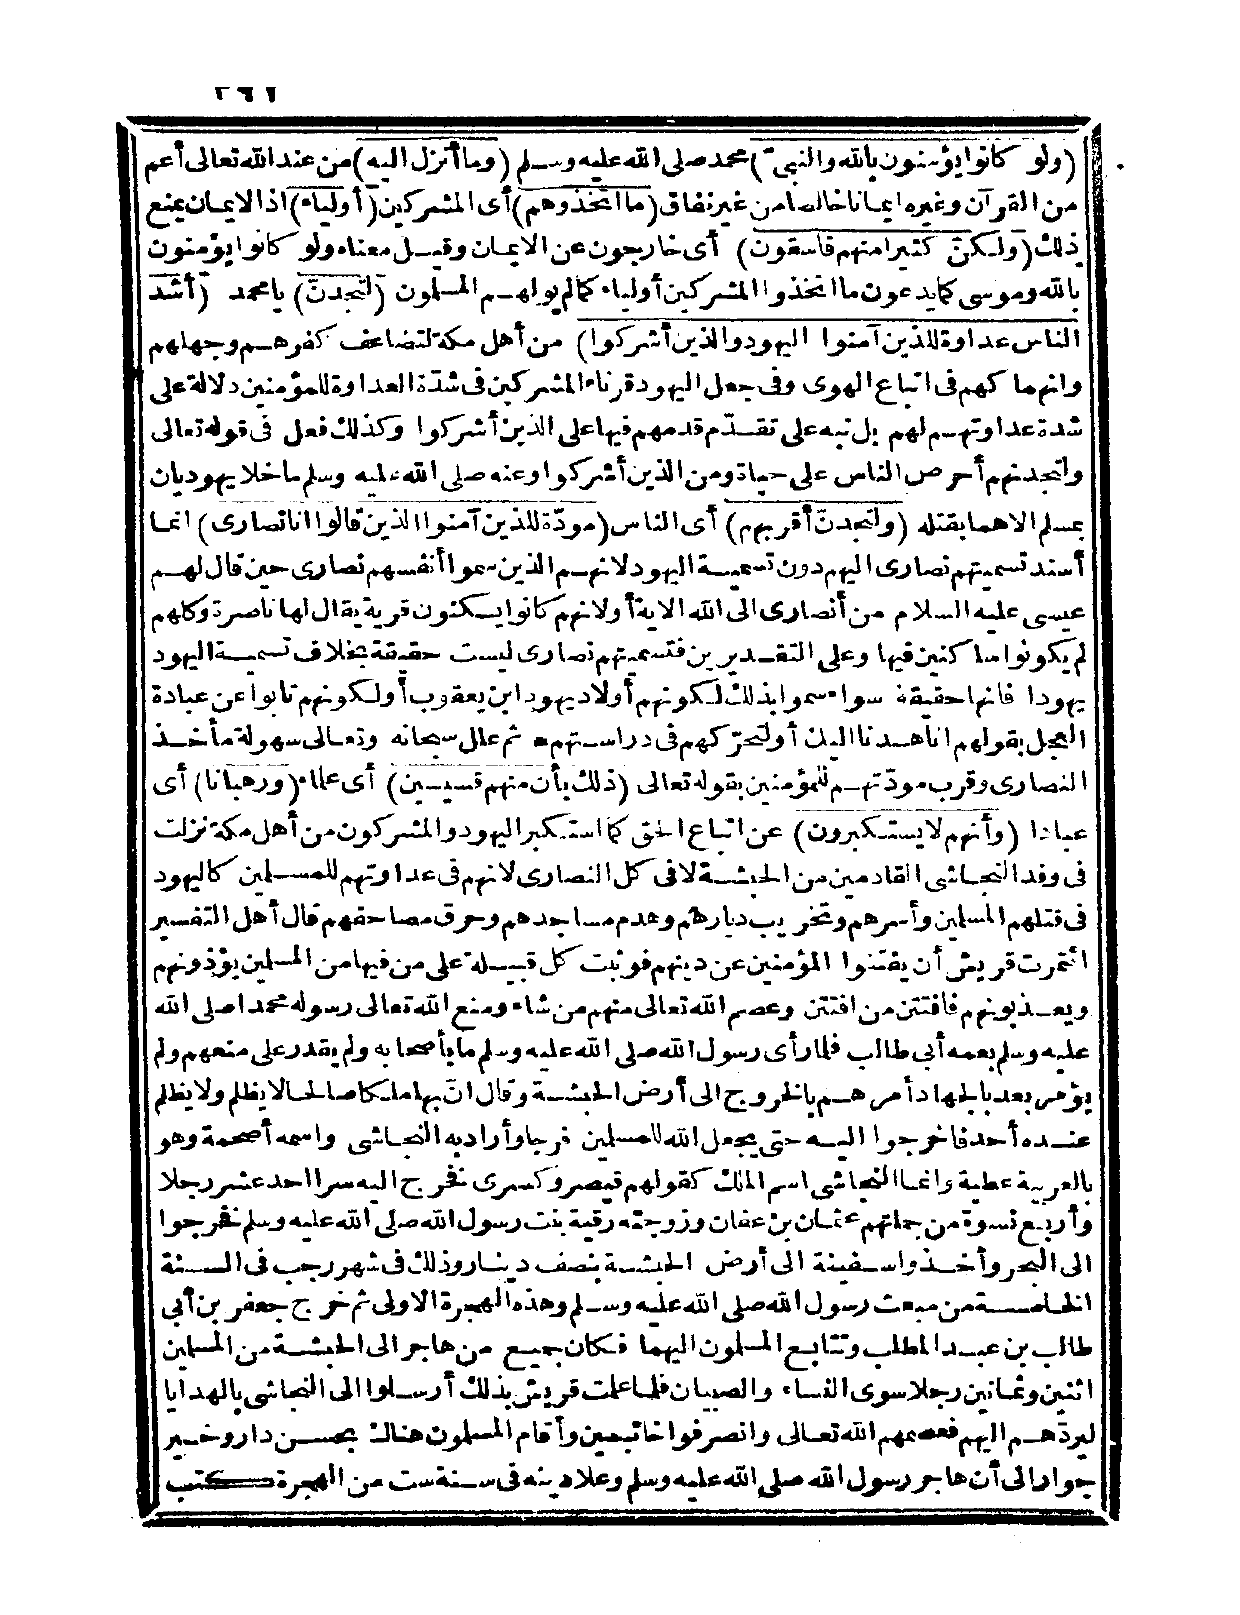 ٣٦١
(ولو كانوا يؤمنون بالله والنبيّ) محمد صلى الله عليه وسلم (وما أنزل اليه) من عند الله تعالى أعم
من القرآن وغيره ايمانا خالصا من غير نفاق (ما اتخذوهم) أى المشركين (أولياء) اذ الايمان يمنع
ذلك (ولكنّ كثيرا منهم فاسقون) أى خارجون عن الايمان وقيل معناه ولو كانوا يؤمنون
بالله وموسى كما يدعون ما اتخذوا المشركين أولياء كما لم يوالهم المسلمون (لتجدنّ) يا محمد (أشدّ
الناس عداوة للذين آمنوا اليهود والذين أشركوا) من أهل مكة لتضاعف كفرهم وجهلهم
وانهماكهم فى اتباع الهوى وفى جعل اليهود قرناء المشركين فى شدّة العداوة للمؤمنين دلالة على
شدة عداوتهم لهم بل نبه على تقدّم قدمهم فيها على الذين أشركوا وكذلك فعل فى قوله تعالى
ولتجدنهم أحرص الناس على حياة ومن الذين أشركوا وعنه صلى الله عليه وسلم ما خلا يهوديان
بمسلم الا هما بقتله (ولتجدنّ أقربهم) أى الناس (مودّة للذين آمنوا الذين قالوا انا نصارى) انما
أسند تسميتهم نصارى اليهم دون تسمية اليهود لانهم الذين سموا أنفسهم نصارى حين قال لهم
عيسى عليه السلام من أنصارى الى الله الاية أولانهم كانوا يسكنون قرية يقال لها ناصرة وكلهم
لم يكونوا ساكنين فيها وعلى التقديرين فتسميتهم نصارى ليست حقيقة بخلاف تسمية اليهود
يهودا فانها حقيقة سواء سموا بذلك لكونهم أولاد يهود ابن يعقوب أولكونهم تابوا عن عبادة
العجل بقولهم انا هدنا اليك أولتحرّكهم فى دراستهم ثم علل سبحانه وتعالى سهولة مأخذ
النصارى وقرب مودّتهم للمؤمنين بقوله تعالى (ذلك بأن منهم قسيسين) أى علماء (ورهبانا) أى
عبادا (وأنهم لا يستكبرون) عن اتباع الحق كما استكبر اليهود والمشركون من أهل مكة نزلت
فى وفد النجاشى القادمين من الحبشة لا فى كل النصارى لانهم فى عداوتهم للمسلمين كاليهود
فى قتلهم المسلمين وأسرهم وتخريب ديارهم وهدم مساجدهم وحرق مصاحفهم قال أهل التفسير
ائتمرت قريش أن يفتنوا المؤمنين عن دينهم فوثبت كل قبيلة على من فيها من المسلمين يؤذونهم
ويعذبونهم فافتتن من افتتن وعصم الله تعالى منهم من شاء ومنع الله تعالى رسوله محمدا صلى الله
عليه وسلم بعمه أبى طالب فلما رأى رسول الله صلى الله عليه وسلم ما بأصحابه ولم يقدر على منعهم ولم
يؤمر بعد بالجهاد أمرهم بالخروج الى أرض الحبشة وقال انّ بها ملكا صالحا لا يظلم ولا يظلم
عنده أحد فاخرجوا اليه حتى يجعل الله للمسلمين فرجا وأراد به النجاشى واسمه أصحمة وهو
بالعربية عطية وانما النجاشى اسم الملك كقولهم قيصر وكسرى نخرج اليه سرا احد عشر رجلا
وأربع نسوة من جملتهم عثمان بن عفان وزوجته رقية بنت رسول الله صلى الله عليه وسلم نخرجوا
الى البحر وأخذوا سفينة الى أرض الحبشة بنصف دينار وذلك فى شهر رجب فى السنة
الخامسة من مبعث رسول الله صلى الله عليه وسلم وهذه الهجرة الاولى ثم خرج جعفر بن أبى
طالب بن عبد المطلب وتتابع المسلمون اليهما فكان جميع من هاجر الى الحبشة من المسلمين
اثنين وثمانين رجلا سوى النساء والصبيان فلما علمت قريش بذلك أرسلوا الى النجاشى بالهدايا
ليردّهم اليهم فعصمهم الله تعالى وانصرفوا خائبين وأقام المسلمون هنالك بحسن دار وخير
جوار الى أن هاجر رسول الله صلى الله عليه وسلم وعلا دينه فى سنة ست من الهجرة كتب